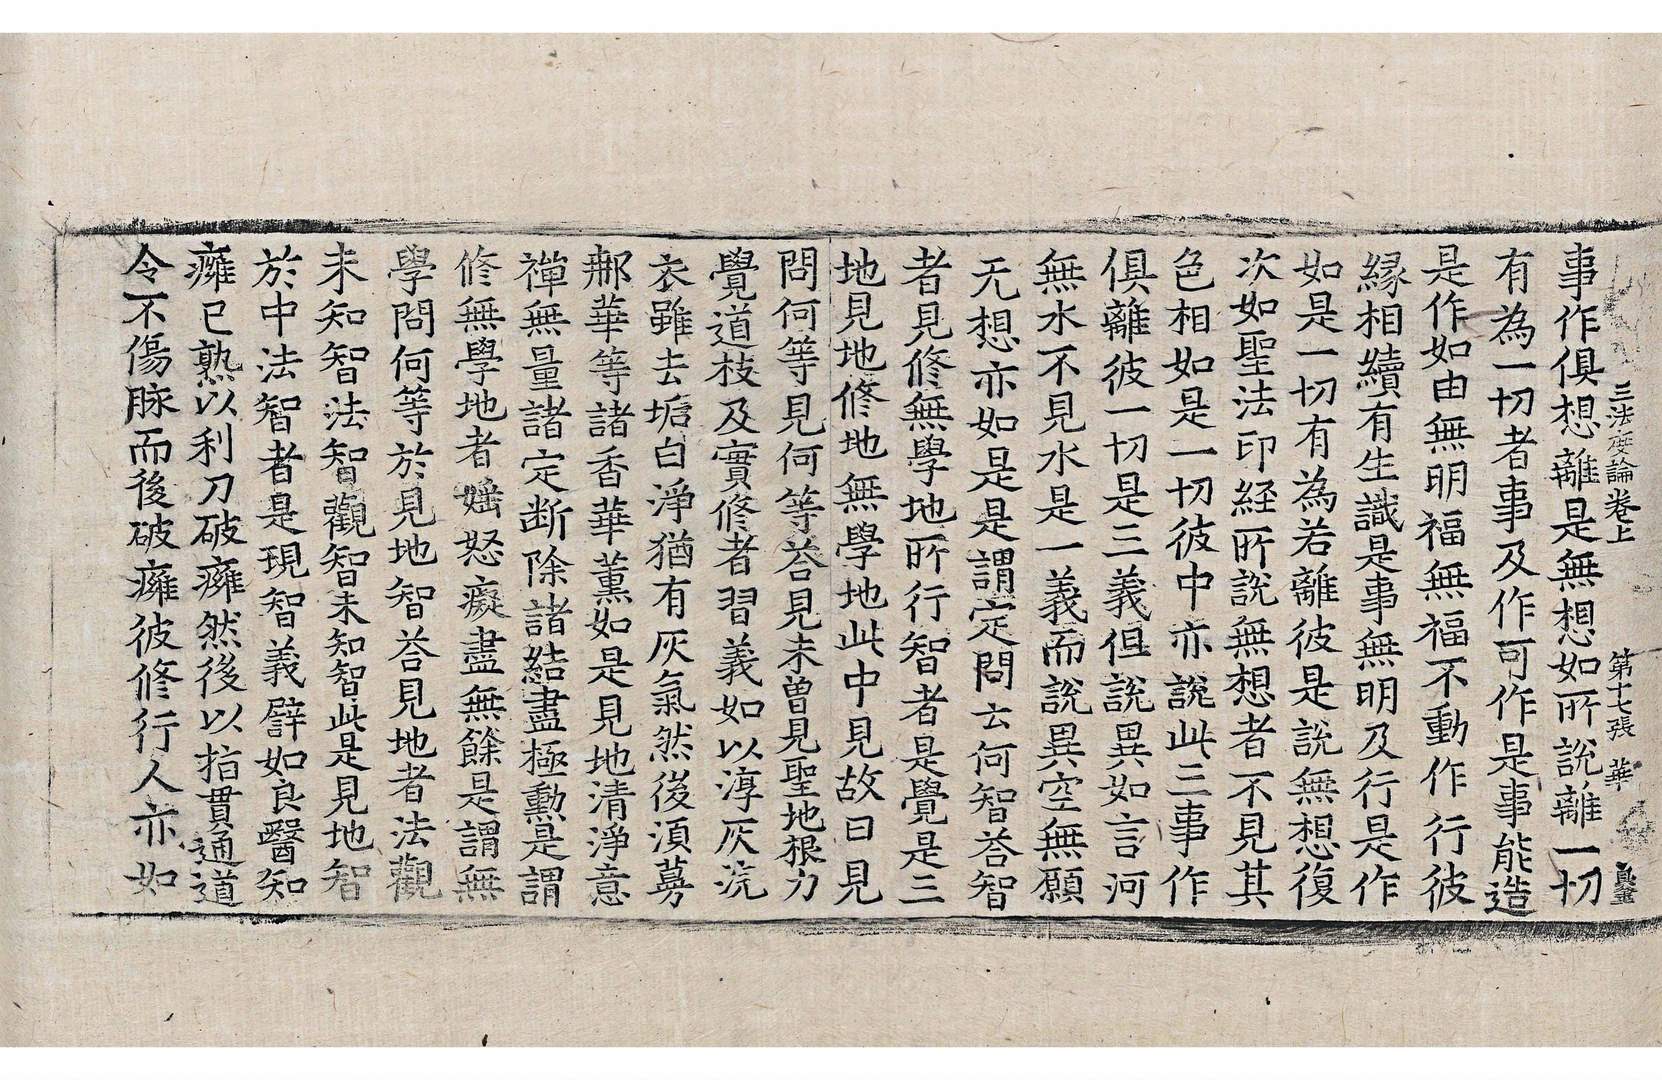 三法度論卷上　第十七張　華
事作俱想離是無想如所說離一切
有為一切者事及作可作是事能造
是作如由無明福無福不動作行彼
緣相續有生識是事無明及行是作
如是一切有為若離彼是說無想復
次如聖法印經所說無想者不見其
色相如是一切彼中亦說此三事作
俱離彼一切是三義但說異如言河
無水不見水是一義而說異空無願
无想亦如是是謂定問云何智荅智
者見修無學地所行智者是覺是三
地見地修地無學地此中見故曰見
問何等見何等荅見未曾見聖地根力
覺道枝及實修者習義如以淳灰浣
衣雖去塘白淨猶有灰氣然後湏蒡
郍華等諸香華薰如是見地清淨意
禪無量諸定断除諸結盡極勲是謂
修無學地者婬怒癡盡無餘是謂無
學問何等於見地智荅見地者法觀
未知智法智觀智未知智此是見地智
於中法智者是現智義譬如良醫知
癰已熟以利刀破癰然後以指貫通道
令不傷脉而後破癰彼修行人亦如